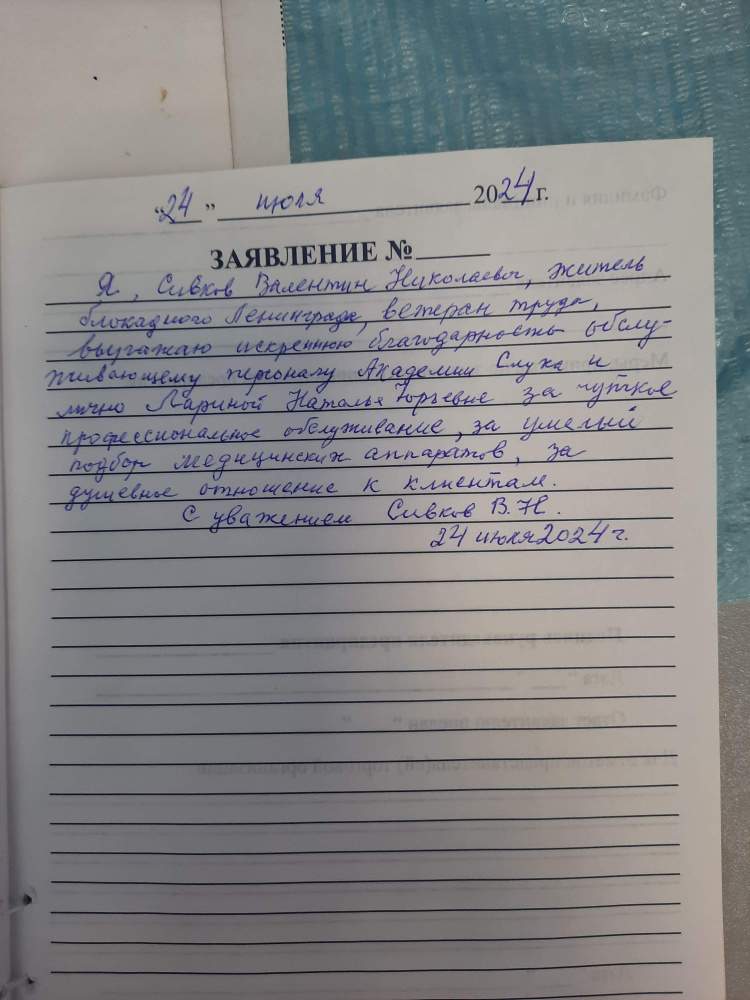 "24" июля 2024 г.
ЗАЯВЛЕНИЕ №
Я, Сивков Валентин Николаевич, житель
блокадного Ленинграда, ветеран труда,
выражаю искреннюю благодарность обслу-
живающему персоналу Академии Слуха и
лично Лариной Наталье Юрьевне за чуткое
профессиональное обслуживание, за умелый
подбор медицинских аппаратов, за
душевное отношение к клиентам.
С уважением Сивков В.Н.
24 июля 2024 г.